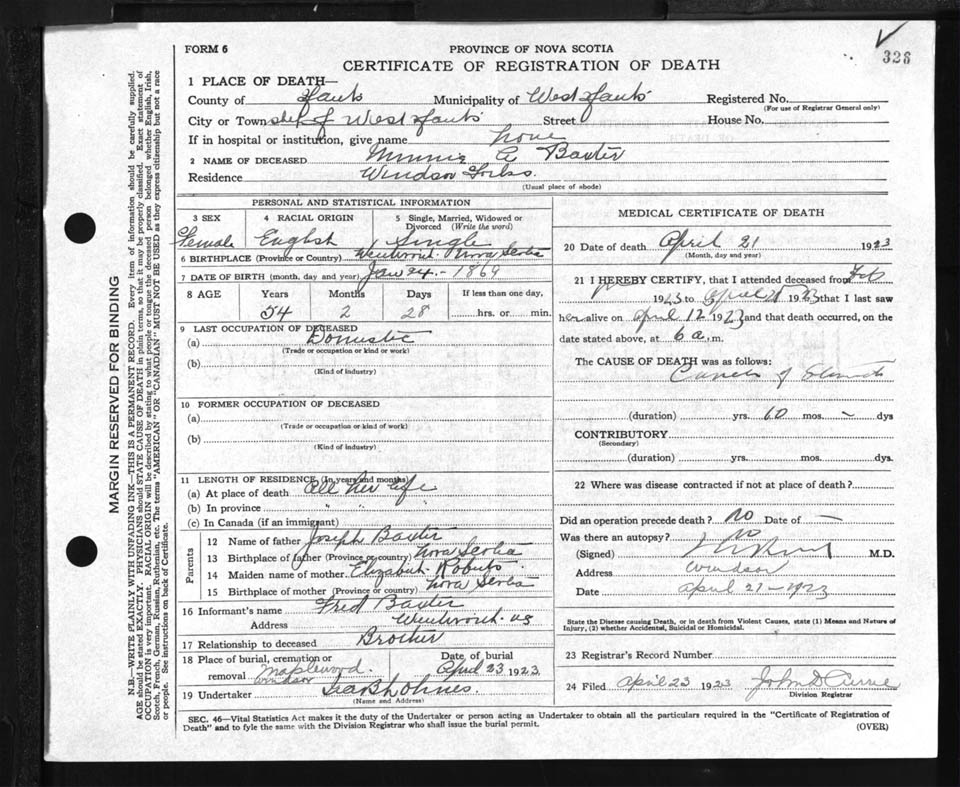 326
FORM 6
PROVINCE OF NOVA SCOTIA
CERTIFICATE OF REGISTRATION OF DEATH
MARGIN RESERVED FOR BINDING
N.B.—WRITE PLAINLY WITH UNFADING INK—THIS IS A PERMANENT RECORD. Every item of information should be carefully supplied.
AGE should be stated EXACTLY. PHYSICIANS should STATE CAUSE OF DEATH in plain terms, so that it may be properly classified. Exact statement of
OCCUPATION is very important. RACIAL ORIGIN will be described by stating to what people or tongue the deceased person belonged whether English, Irish,
Scotch, French, German, Russian, Ruthenian, etc. The terms "AMERICAN" OR "CANADIAN" MUST NOT BE USED as they express citizenship but not a race
or people. See instructions on back of Certificate.
1 PLACE OF DEATH—
County of Hants Municipality of West Hants Registered No.
(For use of Registrar General only)
City or Town of West Hants Street House No.
If in hospital or institution, give name home
2 NAME OF DECEASED Minnie A Baxter
Residence Windsor Forks.
(Usual place of abode)
PERSONAL AND STATISTICAL INFORMATION
3 SEX 4 RACIAL ORIGIN 5 Single, Married, Widowed or Divorced (Write the word)
Female English Single
6 BIRTHPLACE (Province or Country) Wentworth Nova Scotia
7 DATE OF BIRTH (month, day and year) Jan 24 - 1869
8 AGE Years Months Days If less than one day,
54 2 28 hrs. or min.
9 LAST OCCUPATION OF DECEASED
(a) Domestic
(Trade or occupation or kind or work)
(b)
(Kind of industry)
10 FORMER OCCUPATION OF DECEASED
(a)
(Trade or occupation or kind of work)
(b)
(Kind of industry)
11 LENGTH OF RESIDENCE (In years and months)
(a) At place of death All her life
(b) In province " " "
(c) In Canada (if an immigrant)
Parents
12 Name of father Joseph Baxter
13 Birthplace of father (Province or country) Nova Scotia
14 Maiden name of mother Elizabeth Roberts
15 Birthplace of mother (Province or country) Nova Scotia
16 Informant's name Fred Baxter
Address Wentworth NS
17 Relationship to deceased Brother
18 Place of burial, cremation or removal Maplewood Windsor
Date of burial April 23 1923
19 Undertaker
(Name and Address)
MEDICAL CERTIFICATE OF DEATH
20 Date of death April 21 1923
(Month, day and year)
21 I HEREBY CERTIFY, that I attended deceased from Feb
1923 to April 21 1923 that I last saw
her alive on April 12 1923 and that death occurred, on the
date stated above, at 6 a. m.
The CAUSE OF DEATH was as follows:
Cancer of Stomach
(duration) yrs. 10 mos. — dys
CONTRIBUTORY
(Secondary)
(duration) yrs. mos. dys.
22 Where was disease contracted if not at place of death?
Did an operation precede death? No Date of —
Was there an autopsy? No
(Signed) M.D.
Address Windsor
Date April 21 - 1923
State the Disease causing Death, or in death from Violent Causes, state (1) Means and Nature of
Injury, (2) whether Accidental, Suicidal or Homicidal.
23 Registrar's Record Number
24 Filed April 23 1923 John D Currie
Division Registrar
SEC. 46—Vital Statistics Act makes it the duty of the Undertaker or person acting as Undertaker to obtain all the particulars required in the "Certificate of Registration of
Death" and to fyle the same with the Division Registrar who shall issue the burial permit. (OVER)